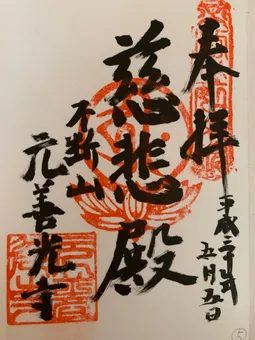 奉拝
平成二十年
五月五日
慈悲殿
不断山
元善光寺
5